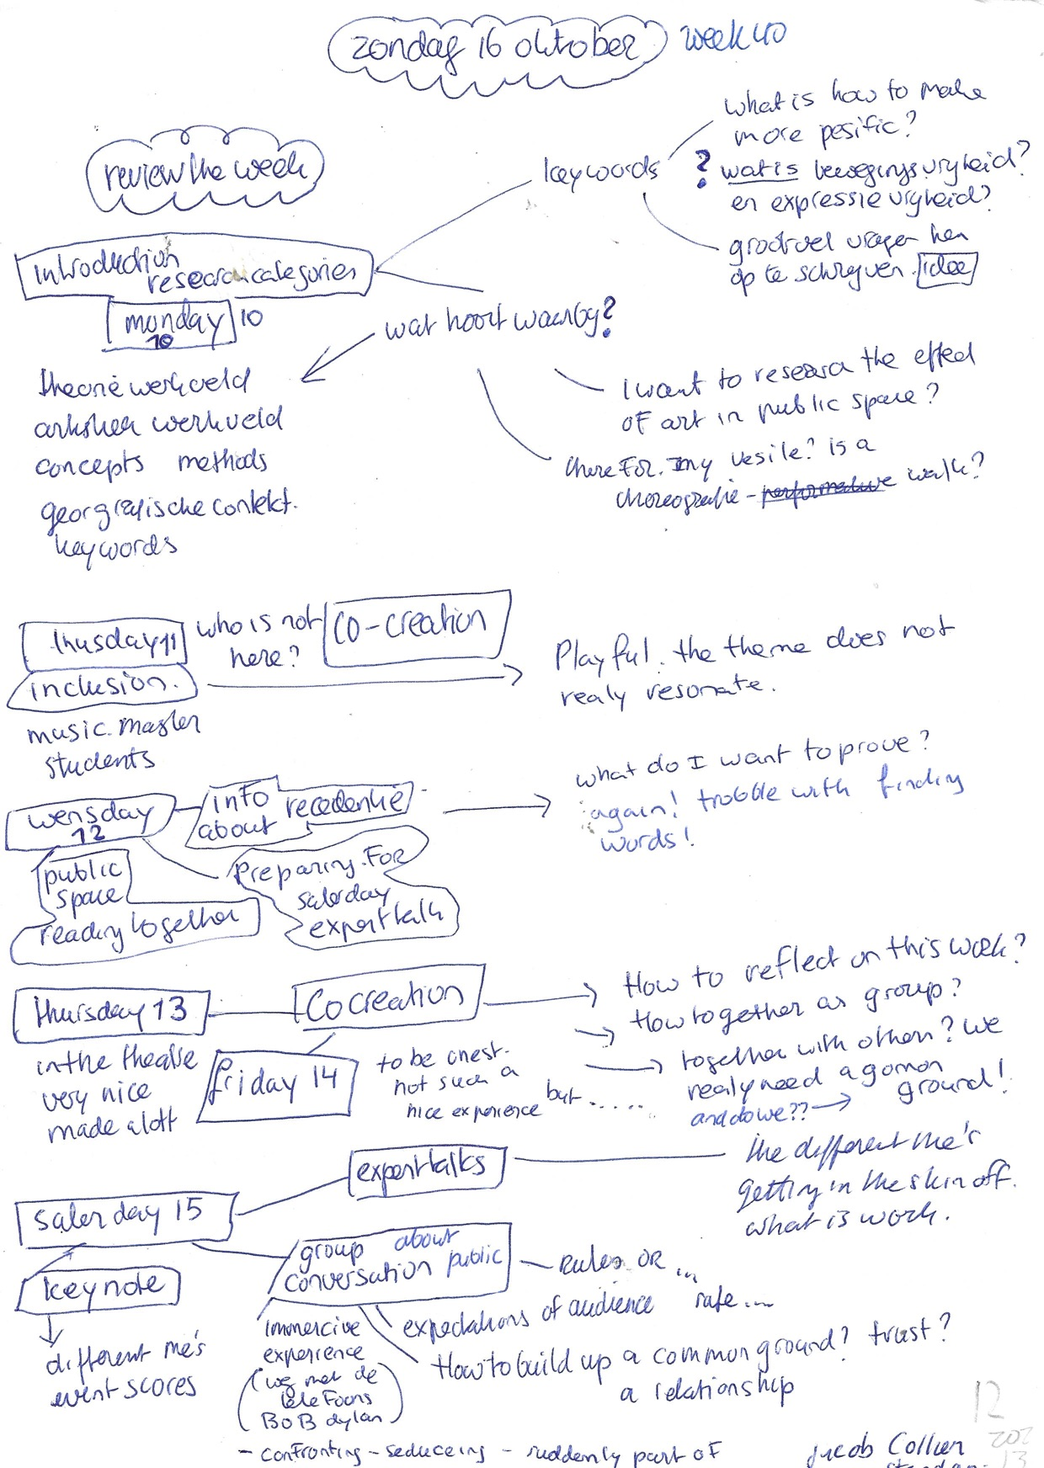 zondag 16 oktober week 40
review the week
keywords
what is how to make
more pesific?
? wat is bewegingsvryheid?
en expressie vryheid?
grootveel vragen hen
op te schryven. idee
introduction
research categories
monday 10
10
wat hoort waarby?
theorie werkveld
artistiek werkveld
concepts methods
geografische context.
keywords
I want to research the effect
of art in public space?
therefor. my vesile? is a
choreografie - performative walk?
thusday 11
inclusion.
music master
students
who is not
here?
co-creation
Playful. the theme does not
realy resonate.
wensday
12
info
about recedentie
what do I want to prove?
again! trobble with finding
words!
public
space
reading together
Preparing for
saterday
expert talk
thursday 13
in the theatre
very nice
made a lott
Cocreation
friday 14
to be onest.
not such a
nice experience but ......
How to reflect on this week?
How together as group?
together with others? we
realy need a gomon
ground!
and do we??
expert talks
the different me's
getting in the skin off.
what is work.
saterday 15
keynote
different me's
event scores
group about
conversation public
rules or ...
expectations of audience rate...
How to build up a common ground? trust?
a relationship
immercive
experience
(weg met de
telefoons
BoB dylan)
- confronting - seduceing - suddenly part of
Jacob Collier
12
13